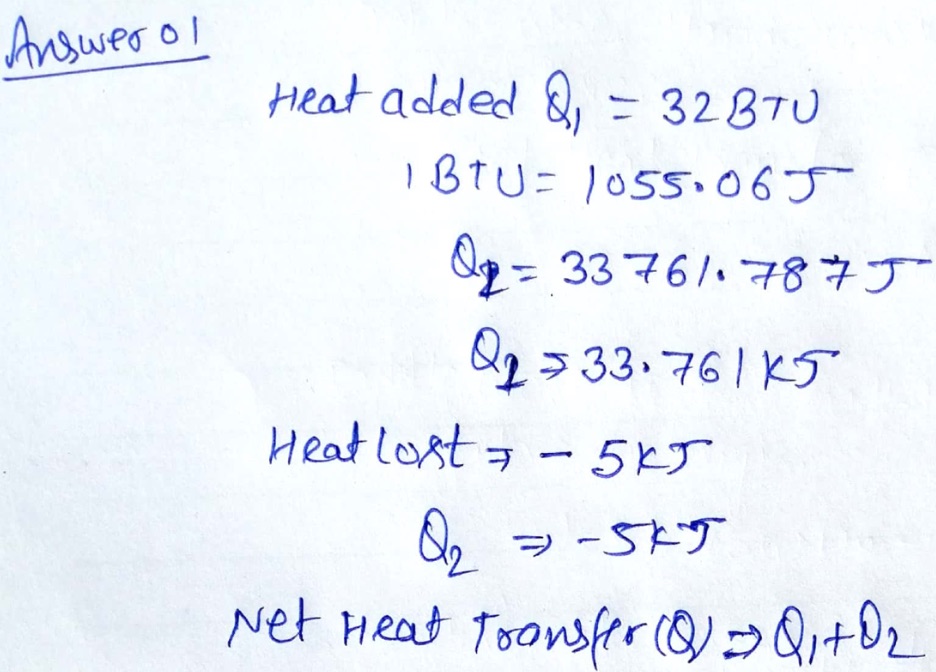 Answer 01
Heat added Q₁ = 32 BTU
1 BTU = 1055.06 J
Q₁ = 33761.787 J
Q₁ ⇒ 33.761 KJ
Heat lost ⇒ - 5 KJ
Q₂ ⇒ - 5 KJ
Net Heat Transfer (Q) ⇒ Q₁ + Q₂